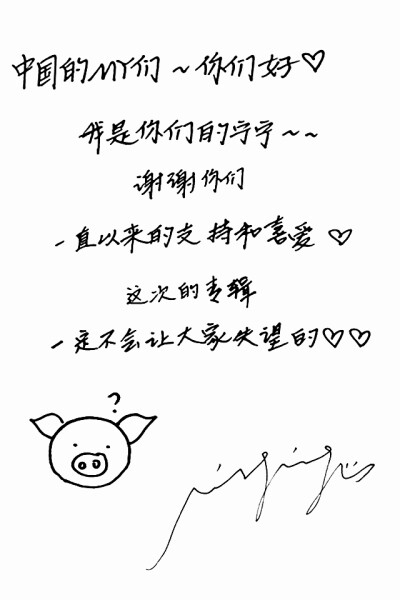 中国的MY们~你们好♡
我是你们的宁宁~~
谢谢你们
一直以来的支持和喜爱♡
这次的专辑
一定不会让大家失望的♡♡
?